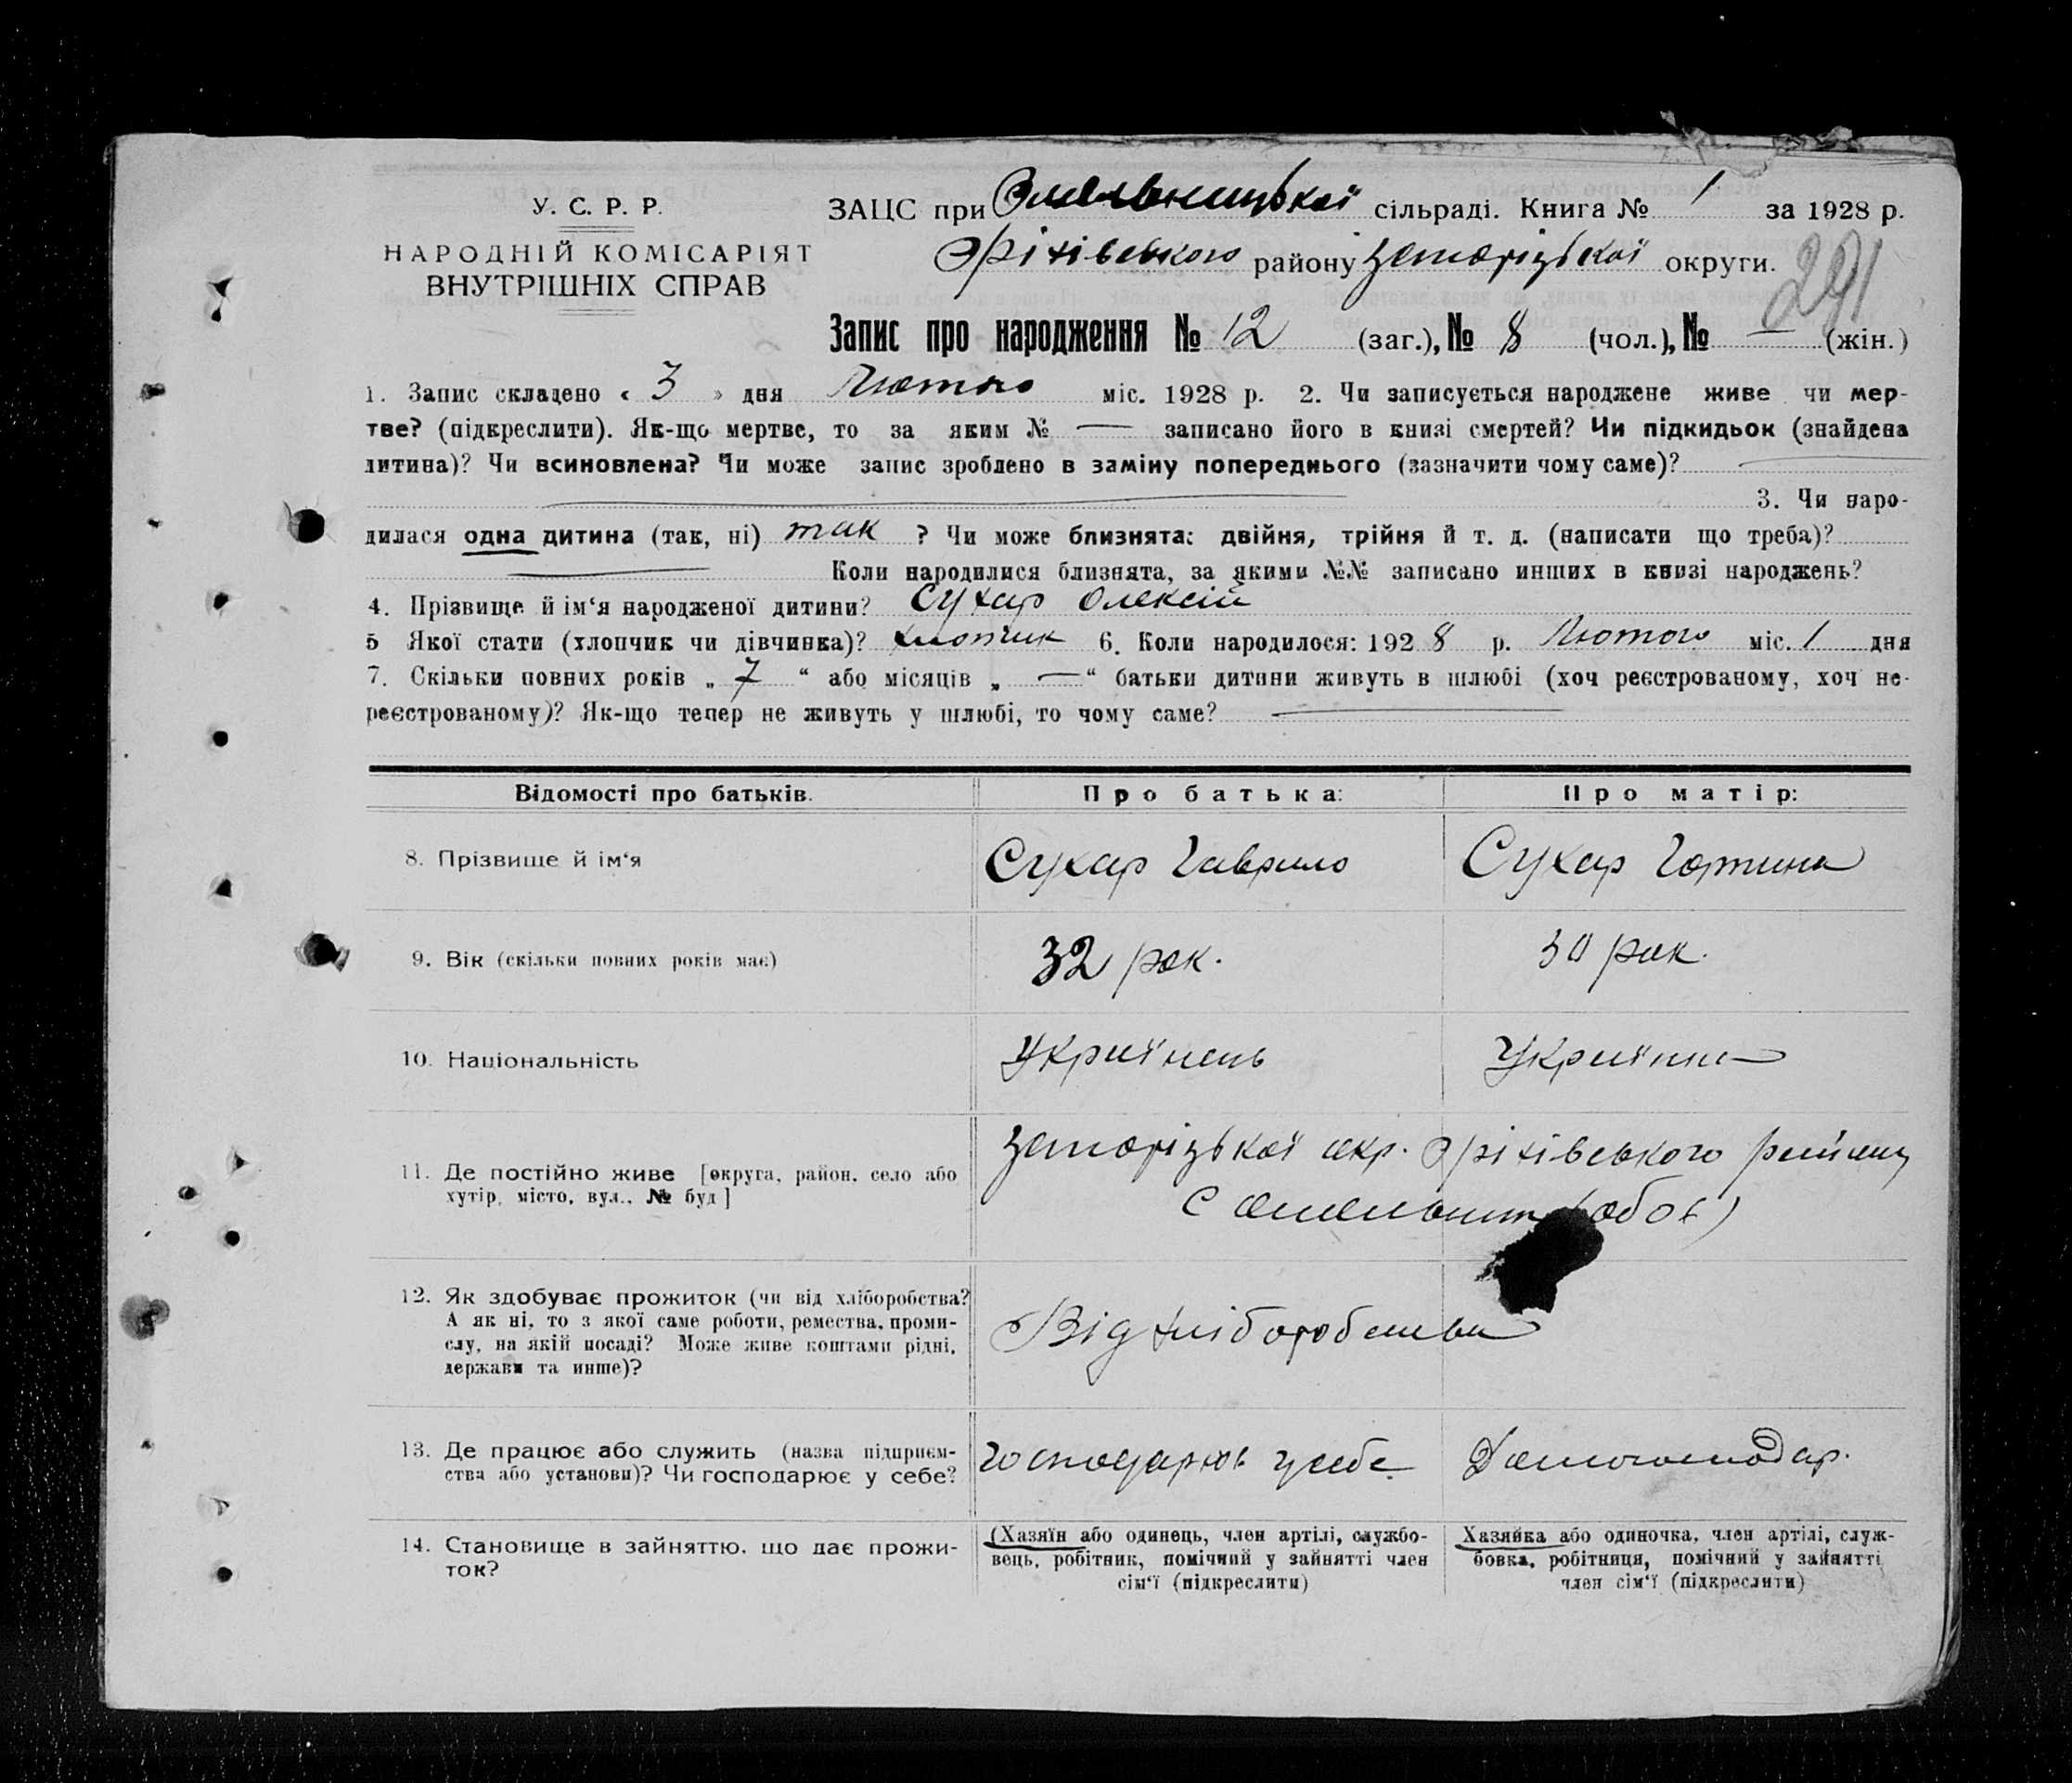 У. С. Р. Р.
НАРОДНІЙ КОМІСАРІЯТ
ВНУТРІШНІХ СПРАВ
ЗАЦС при Омельницької сільраді. Книга № 1 за 1928 р.
Оріхівського району Запорізької округи.
291
Запис про народження № 12 (заг.), № 8 (чол.), № — (жін.)
1. Запис складено « 3 » дня Лютого міс. 1928 р. 2. Чи записується народжене живе чи мер-
тве? (підкреслити). Як-що мертве, то за яким № — записано його в книзі смертей? Чи підкидьок (знайдена
дитина)? Чи всиновлена? Чи може запис зроблено в заміну попереднього (зазначити чому саме)?
3. Чи наро-
дилася одна дитина (так, ні) так ? Чи може близнята: двійня, трійня й т. д. (написати що треба)?
Коли народилися близнята, за якими №№ записано инших в книзі народжень?
4. Прізвище й ім‘я народженої дитини? Сухар Олексій
5 Якої стати (хлопчик чи дівчинка)? хлопчик 6. Коли народилося: 1928 р. Лютого міс. 1 дня
7. Скільки повних років „ 7 “ або місяців „ — “ батьки дитини живуть в шлюбі (хоч реєстрованому, хоч не-
реєстрованому)? Як-що тепер не живуть у шлюбі, то чому саме?
Відомості про батьків. Про батька: Про матір:
8. Прізвище й ім‘я Сухар Гаврило Сухар Горпина
9. Вік (скільки повних років має) 32 рок. 30 рок.
10. Національність Україпець Українка
11. Де постійно живе [округа, район, село або
хутір, місто, вул., № буд]
Запорізької окр. Оріхівського району
с Омельник (обоє)
12. Як здобуває прожиток (чи від хліборобства?
А як ні, то з якої саме роботи, ремества, проми-
слу, на якій посаді? Може живе коштами рідні,
держави та инше)?
Від хліборобства
13. Де працює або служить (назва підприєм-
ства або установи)? Чи господарює у себе?
Господарює у себе Домогосподар.
14. Становище в зайняттю, що дає прожи-
ток?
(Хазяїн або одинець, член артілі, службо-
вець, робітник, помічний у зайнятті член
сім‘ї (підкреслити)
Хазяйка або одиночка, член артілі, служ-
бовка, робітниця, помічний у зайнятті
член сім‘ї (підкреслити)